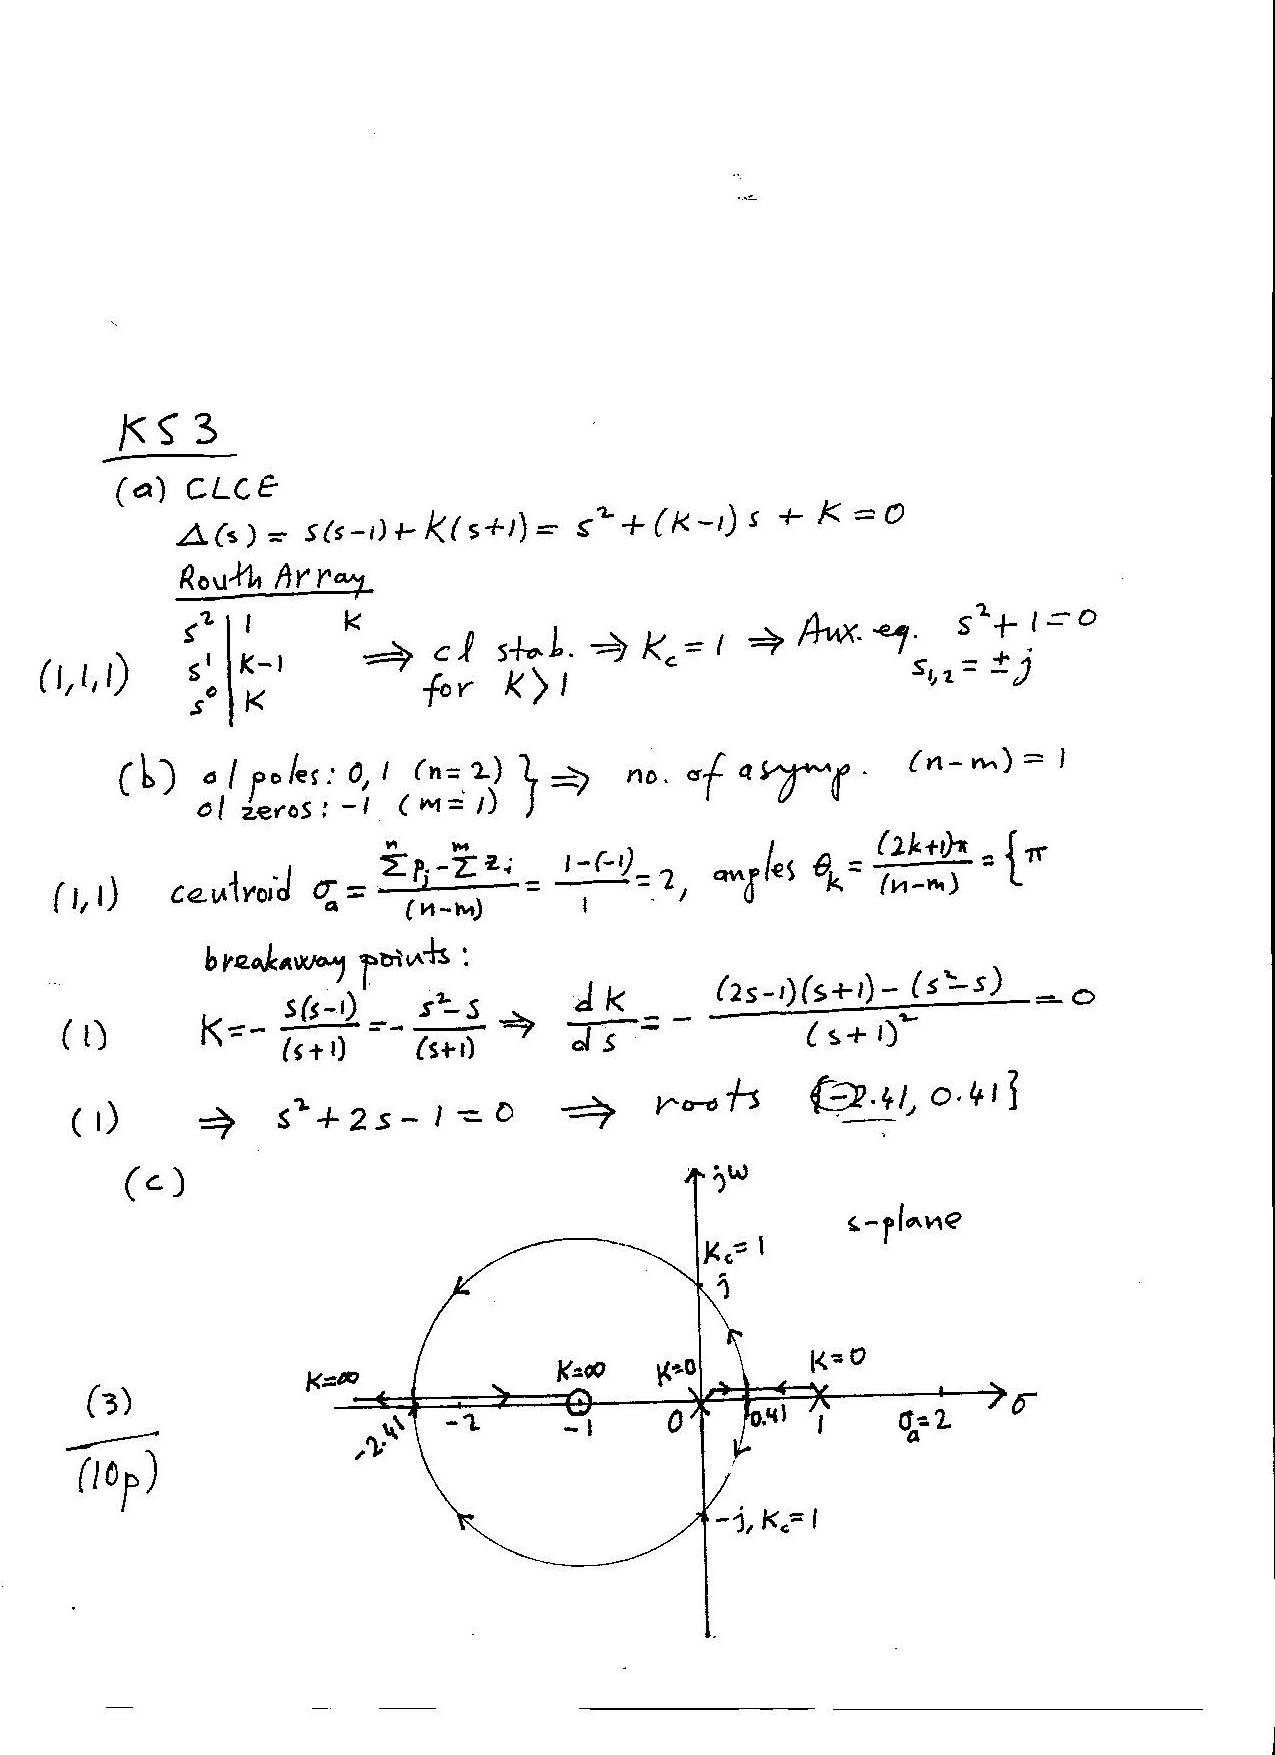 KS3
(a) CLCE
Δ(s) = s(s-1) + K(s+1) = s² + (K-1)s + K = 0
Routh Array
s² | 1 K
(1,1,1) s¹ | K-1 ⇒ cl stab. ⇒ K_c = 1 ⇒ Aux. eq. s² + 1 = 0
s⁰ | K for K>1 s₁,₂ = ±j
(b) ol poles: 0, 1 (n=2) } ⇒ no. of asymp. (n-m) = 1
ol zeros: -1 (m=1)
(1,1) centroid σ_a = (Σⁿ p_j - Σᵐ z_i)/(n-m) = (1-(-1))/1 = 2, angles θ_k = (2k+1)π/(n-m) = {π
breakaway points:
(1) K = - s(s-1)/(s+1) = - (s²-s)/(s+1) ⇒ dK/ds = - ((2s-1)(s+1) - (s²-s))/(s+1)² = 0
(1) ⇒ s² + 2s - 1 = 0 ⇒ roots {-2.41, 0.41}
(c)
jω
s-plane
K_c = 1
j
K=∞ K=∞ K=0 K=0
(3) -2.41 -2 -1 0 0.41 1 σ_a = 2 σ
(10p)
-j, K_c = 1